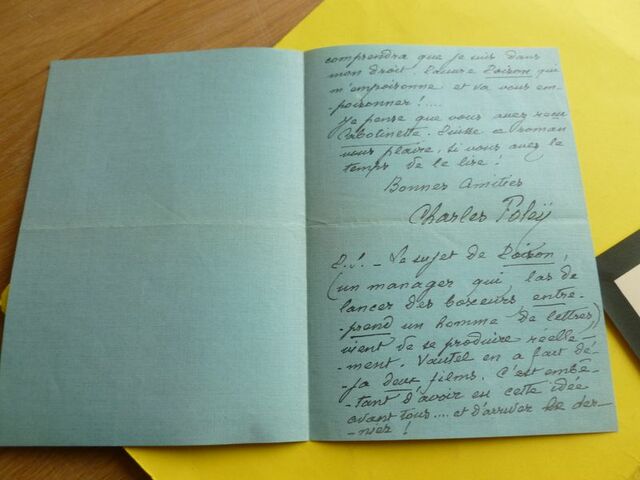 comprendra que je suis dans
mon droit. Pauvre Poison qui
m'empoisonne et va vous em-
-poisonner !....
Je pense que vous avez reçu
Cabotinette. Puisse ce roman
vous plaire, si vous avez le
temps de le lire !
Bonnes amitiés
Charles Foleÿ
P.S. - Le sujet de Poison,
(un manager qui las de
lancer des boxeurs entre-
-prend un homme de lettres)
vient de se produire réelle-
-ment. Vautel en a fait dé-
-jà deux films. C'est embê-
-tant d'avoir eu cette idée
avant tous.... et d'arriver le der-
-nier !